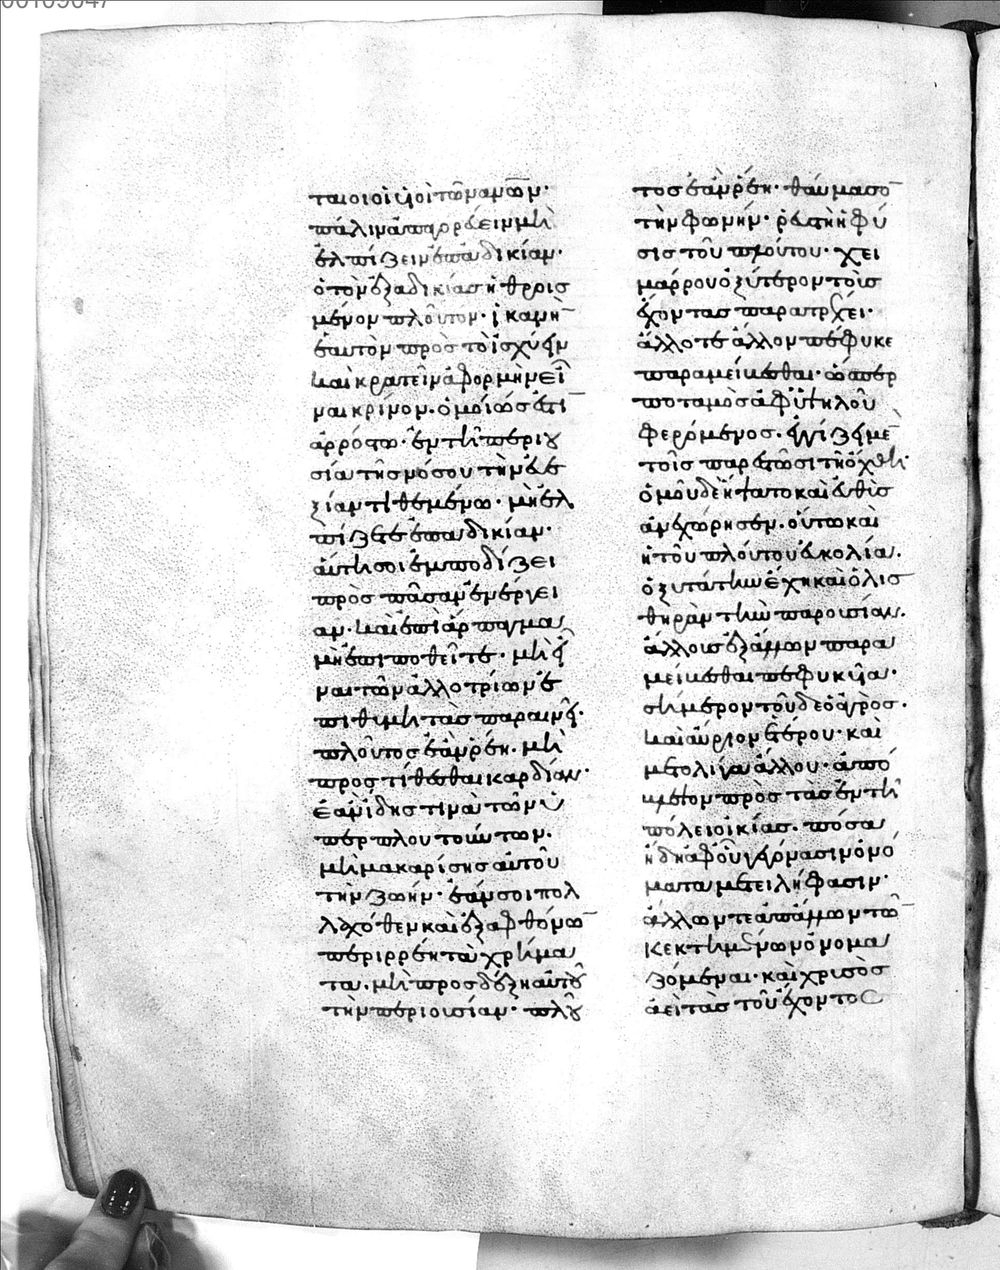 ταιοι οἱ υἱοὶ τῶν ἀνω̅ν·
πάλιν ἀπαγορεύειν μὴ
ἐλπίζειν ἐπ' ἀδικίαν·
ὁ τὸν ἐξ ἀδικίας ἠθροισ
μένον πλοῦτον· ἱκανὴ̅
ἑαυτὸν πρὸς τὸ ἰσχύειν
καὶ κρατεῖν ἀφορμὴν εἶ
ναι κρίνον· ὁμοίως ἐστὶ̅
ἀρρόστω· ἐν τῇ περιου
σία τῆς νόσου τὴν εὐε
ξίαν τιθεμένω· μὴ ἐλ
πίζετε ἐπ' ἀδικίαν·
αὐτη σοι ἐμποδίζει
πρὸς πᾶσαν ἐνέργει
αν· καὶ ἐπὶ ἅρπαγμα
μὴ ἐπιποθεῖτε· μὴ εἶ
ναι τῶν ἀλλοτρίων ἐ
πιθυμητὰς παραινεῖ·
πλοῦτος ἐὰν ῥέη· μὴ
προστίθεσθαι καρδίαν·
ἐὰν ἴδης τινὰ τῶν ὑ
πέρ πλουτούντων·
μὴ μακαρίσης αὐτοῦ
τὴν ζωήν· ἐάν σοι πολ
λαχόθεν καὶ ἐξ ἀφθόνω̅
περιρρέη τὰ χρήμα
τα· μὴ προσδέξη αὐτοῦ
τὴν περιουσίαν· πλοῦ
τος ἐὰν ῥέη· θαύμασο̅
τὴν φωνήν· ῥευστὴ ἡ φύ
σις τοῦ πλούτου· χει
μάρρου ὀξύτερον τοὺς
ἔχοντας παρατρέχει·
ἄλλοτε ἄλλον πέφυκε
παραμείβεσθαι· ὥσπερ
ποταμὸς ἀφ' ὑψηλοῦ
φερόμενος· ἐγγίζει με̅
τοῖς παρεστῶσι τῆ ὄχθη·
ὁμοῦ δὲ ἥψατο καὶ εὐθὺς
ἀνεχώρησεν· οὕτω καὶ
ἡ τοῦ πλούτου εὐκολία·
ὀξυτάτην ἔχη καὶ ὀλισ
θηρὰν τὴν παρουσίαν·
ἄλλους ἐξ ἄλλων παρα
μείβεσθαι πεφυκυῖα·
σήμερον τοῦδε ὁ ἀγρὸς·
καὶ αὔριον ἑτέρου· καὶ
μετ' ολίγον ἄλλου· ἀπό
βλεψον πρὸς τὰς ἐν τῆ
πόλει οἰκίας· πόσα
ἤδη ἀφ' οὗ γεγόνασιν ὀνό
ματα μετειλήφασιν·
ἄλλων τε ἀπ' ἄλλων τω̅
κεκτημένων ὀνομα
ζόμεναι· καὶ χρυσὸς
ἀεὶ τὰς τοῦ ἔχοντος